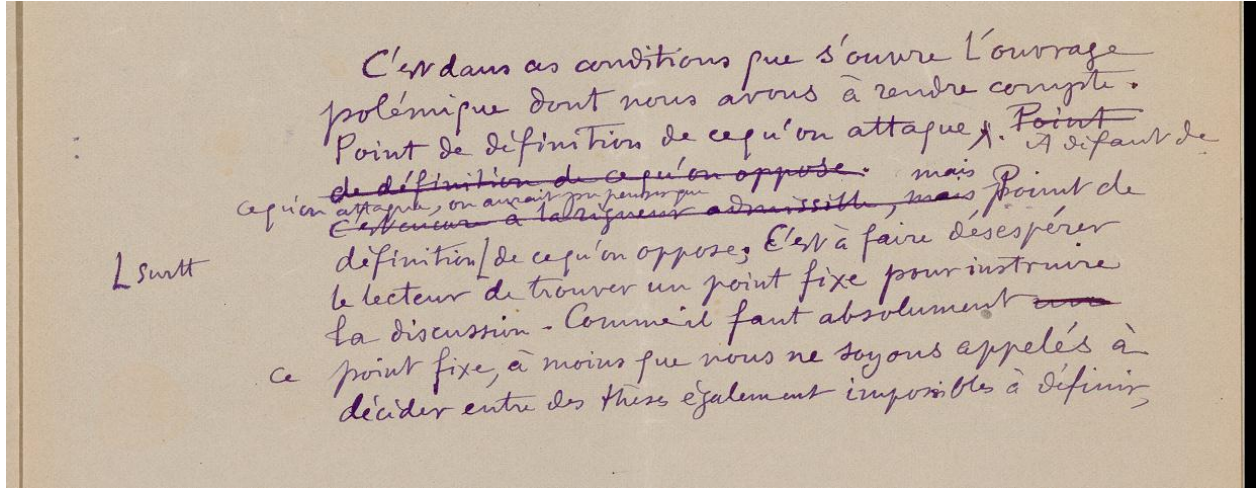 C'est dans ces conditions que s'ouvre l'ouvrage
polémique dont nous avons à rendre compte.
Point de définition de ce qu'on attaque. Point
A défaut de
de définition de ce qu'on oppose. mais
ce qu'on attaque, on aurait pu penser que
C'est encore à la rigueur admissible, mais Point de
définition [de ce qu'on oppose; C'est à faire désespérer
[surtt
le lecteur de trouver un point fixe pour instruire
la discussion. Comme il faut absolument un
ce point fixe, à moins que nous ne soyons appelés à
décider entre des thèses également impossibles à définir,